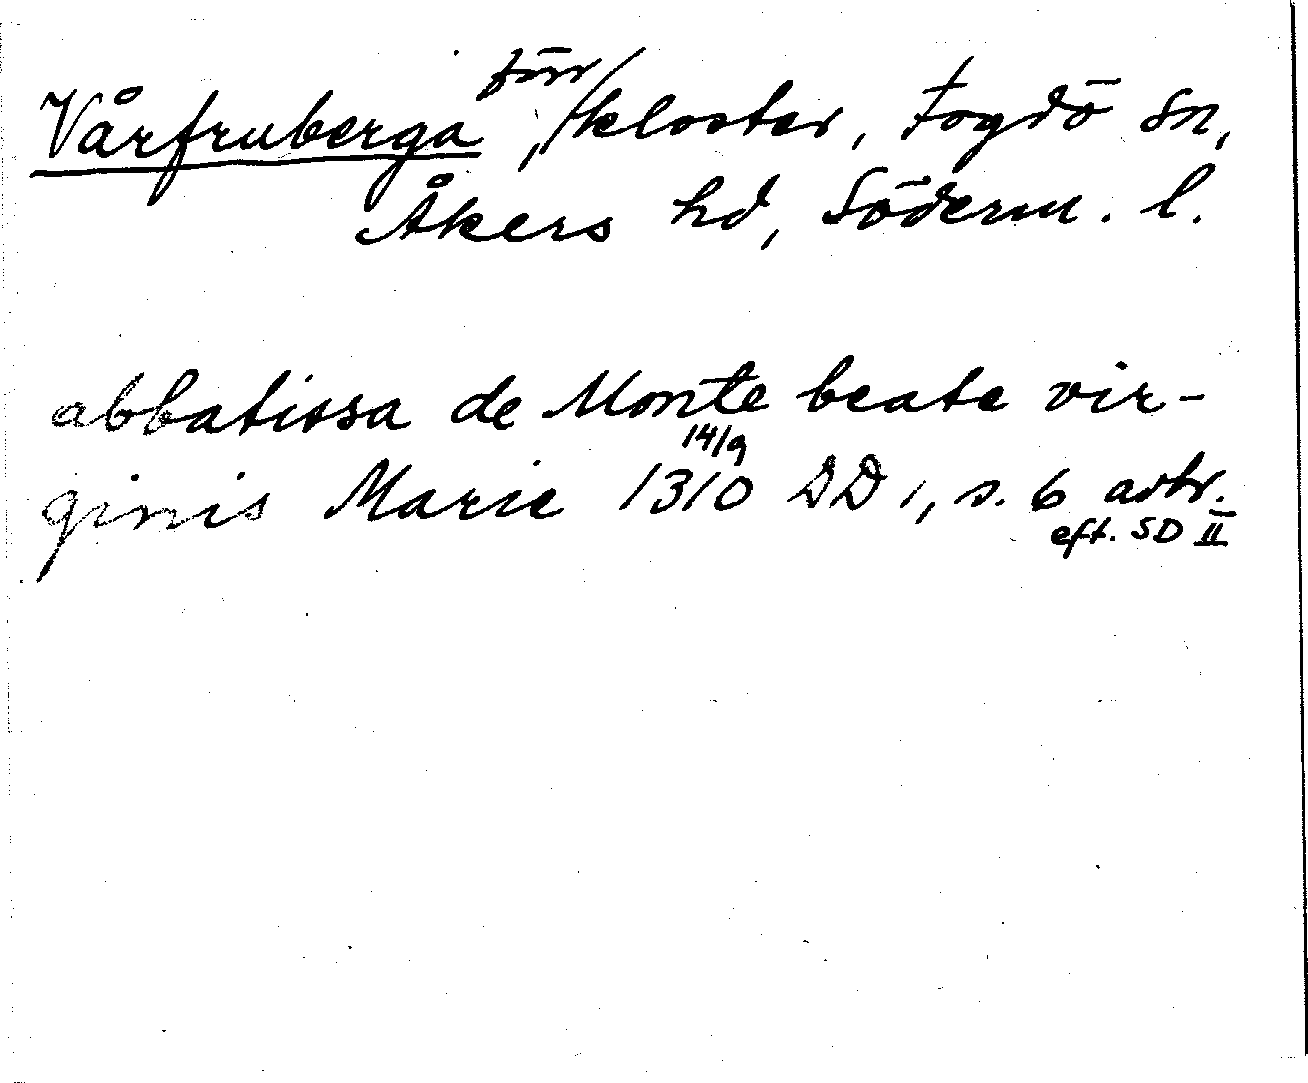 Vårfruberga, förr kloster, Fogdö sn,
Åkers hd, Söderm. l.
abbatissa de Monte beate vir-
ginis Marie 14/9 1310 SD 1, s. 6 avtr.
eft. SD II